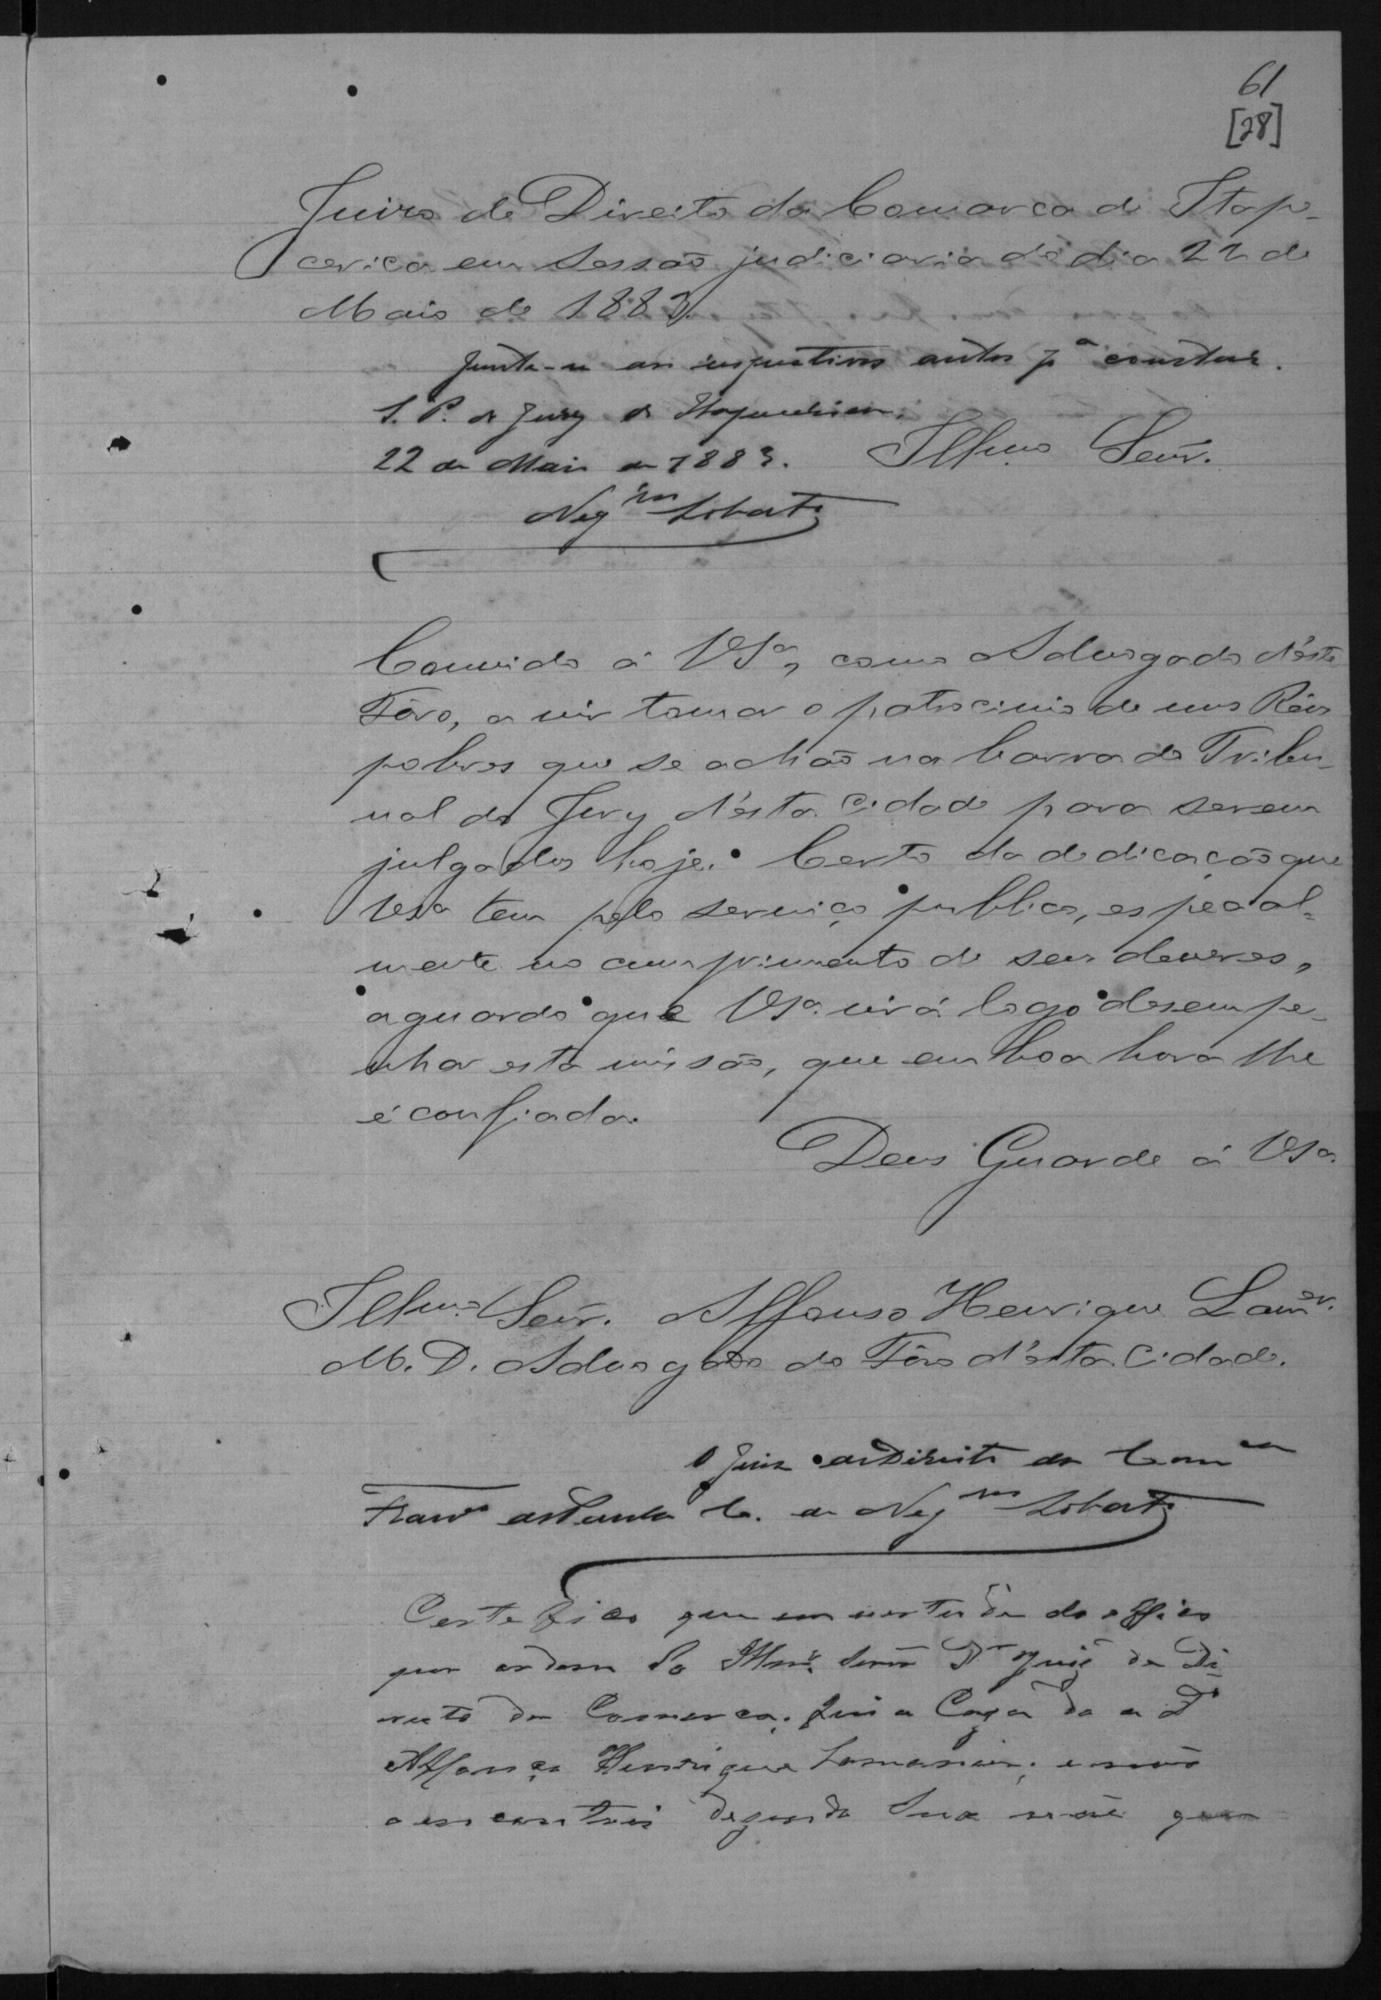 61
[28]
Juizo de Direito da Comarca de Itape-
cerica em sessão judiciaria de dia 22 de
Maio de 1883.
Junte-se aos respectivos autos pª constar.
S. P. do Jury de Itapecerica,
22 de Maio de 1883.
Illmo Senr.
Negros Lobato
Convido á VSª, como Advogado d'este
Fôro, a vir tomar o patrocinio de uns Réos
pobres que se achão na barra do Tribu-
nal do Jury d'esta Cidade para serem
julgados hoje. Certo da dedicação que
VSª tem pelo serviço publico, especial-
mente no cumprimento de seus deveres,
aguardo que VSª virá logo desempe-
nhar esta missão, que em boa hora lhe
é confiada.
Deus Guarde á VSª
Illmo Senr. Affonso Henrique
M. D. Advogado do Fôro d'esta Cidade.
O Juiz de Direito da Comca
Franco de Paula C. de Negros Lobato
Certefico que em vertude do officio
por ordem do Illmo Senr Dr Juiz de Di-
reito da Comarca. fui a Caza do
Affonço Henrique e não
o encontrei dizendo Sua mãe que